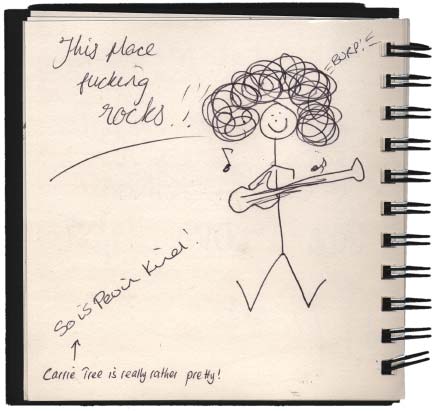 This place
fucking
rocks!!!
=BURP!=
So is Pevin Kinel!
Carrie Tree is really rather pretty!